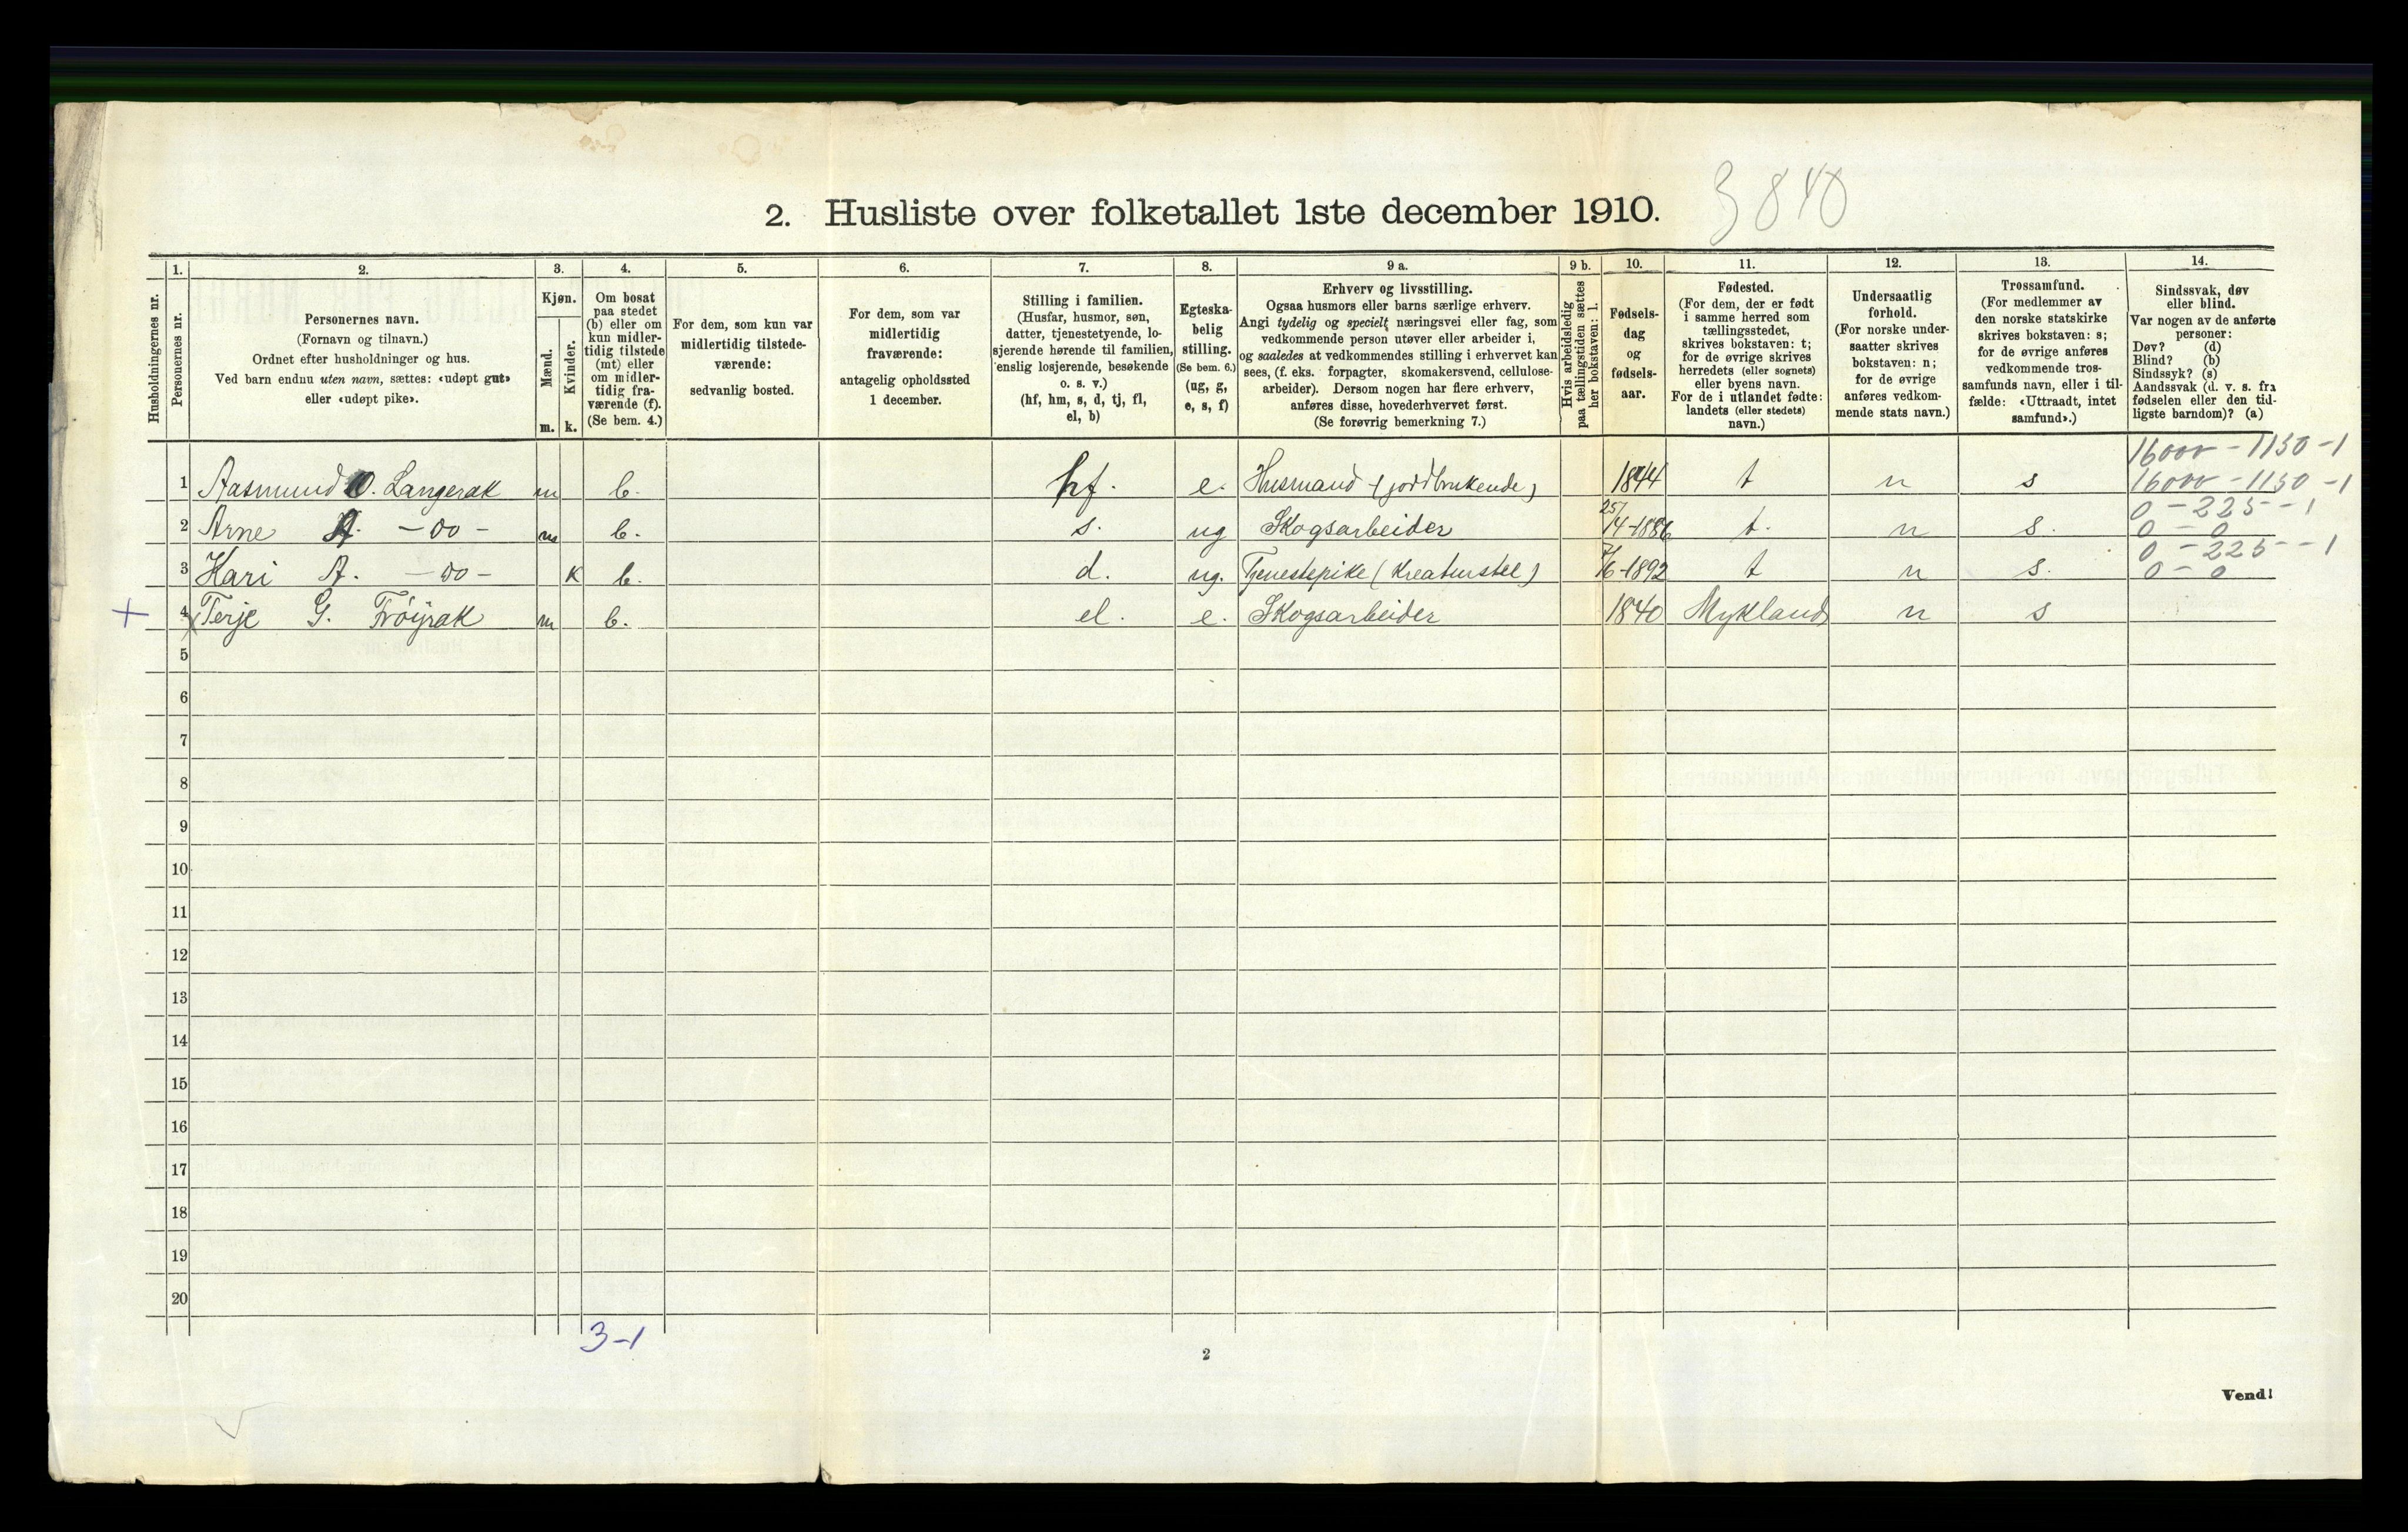 2. Husliste over folketallet 1ste december 1910.
3840
Husholdningernes nr.
1.
Personernes nr.
2.
Personernes navn.
(Fornavn og tilnavn.)
Ordnet efter husholdninger og hus.
Ved barn endnu uten navn, sættes: «udøpt gut»
eller «udøpt pike».
3.
Kjøn.
Mænd.
Kvinder.
m. k.
4.
Om bosat
paa stedet
(b) eller om
kun midler-
tidig tilstede
(mt) eller
om midler-
tidig fra-
værende (f).
(Se bem. 4.)
5.
For dem, som kun var
midlertidig tilstede-
værende:
sedvanlig bosted.
6.
For dem, som var
midlertidig
fraværende:
antagelig opholdssted
1 december.
7.
Stilling i familien.
(Husfar, husmor, søn,
datter, tjenestetyende, lo-
sjerende hørende til familien,
enslig losjerende, besøkende
o. s. v.)
(hf, hm, s, d, tj, fl,
el, b)
8.
Egteska-
belig
stilling.
(Se bem. 6.)
(ug, g,
e, s, f)
9 a.
Erhverv og livsstilling.
Ogsaa husmors eller barns særlige erhverv.
Angi tydelig og specielt næringsvei eller fag, som
vedkommende person utøver eller arbeider i,
og saaledes at vedkommendes stilling i erhvervet kan
sees, (f. eks. forpagter, skomakersvend, cellulose-
arbeider). Dersom nogen har flere erhverv,
anføres disse, hovederhvervet først.
(Se forøvrig bemerkning 7.)
9 b.
Hvis arbeidsledig
paa tællingstiden sættes
her bokstaven: l.
10.
Fødsels-
dag
og
fødsels-
aar.
11.
Fødested.
(For dem, der er født
i samme herred som
tællingsstedet,
skrives bokstaven: t;
for de øvrige skrives
herredets (eller sognets)
eller byens navn.
For de i utlandet fødte:
landets (eller stedets)
navn.)
12.
Undersaatlig
forhold.
(For norske under-
saatter skrives
bokstaven: n;
for de øvrige
anføres vedkom-
mende stats navn.)
13.
Trossamfund.
(For medlemmer av
den norske statskirke
skrives bokstaven: s;
for de øvrige anføres
vedkommende tros-
samfunds navn, eller i til-
fælde: «Uttraadt, intet
samfund».)
14.
Sindssvak, døv
eller blind.
Var nogen av de anførte
personer:
Døv? (d)
Blind? (b)
Sindssyk? (s)
Aandssvak (d. v. s. fra
fødselen eller den tid-
ligste barndom)? (a)
16000 - 1150 - 1
1 Aasmund O. Langerak m b. hf. e. Husmand (jordbrukende) 1844 t n s 16000 - 1150 - 1
0 - 225 - 1
2 Arne A. - do - m b. s. ug Skogsarbeider 14-1886 t. n s. 0 - 0
0 - 225 - 1
3 Kari A. - do - k b. d. ug. Tjenestepike (Kreaturstel) 7/6-1892 t n s. 0 - 0
+ 4 Terje G. Frøysak m b. el. e. Skogsarbeider 1840 Mykland n s
5
6
7
8
9
10
11
12
13
14
15
16
17
18
19
20
3-1
2
Vend!